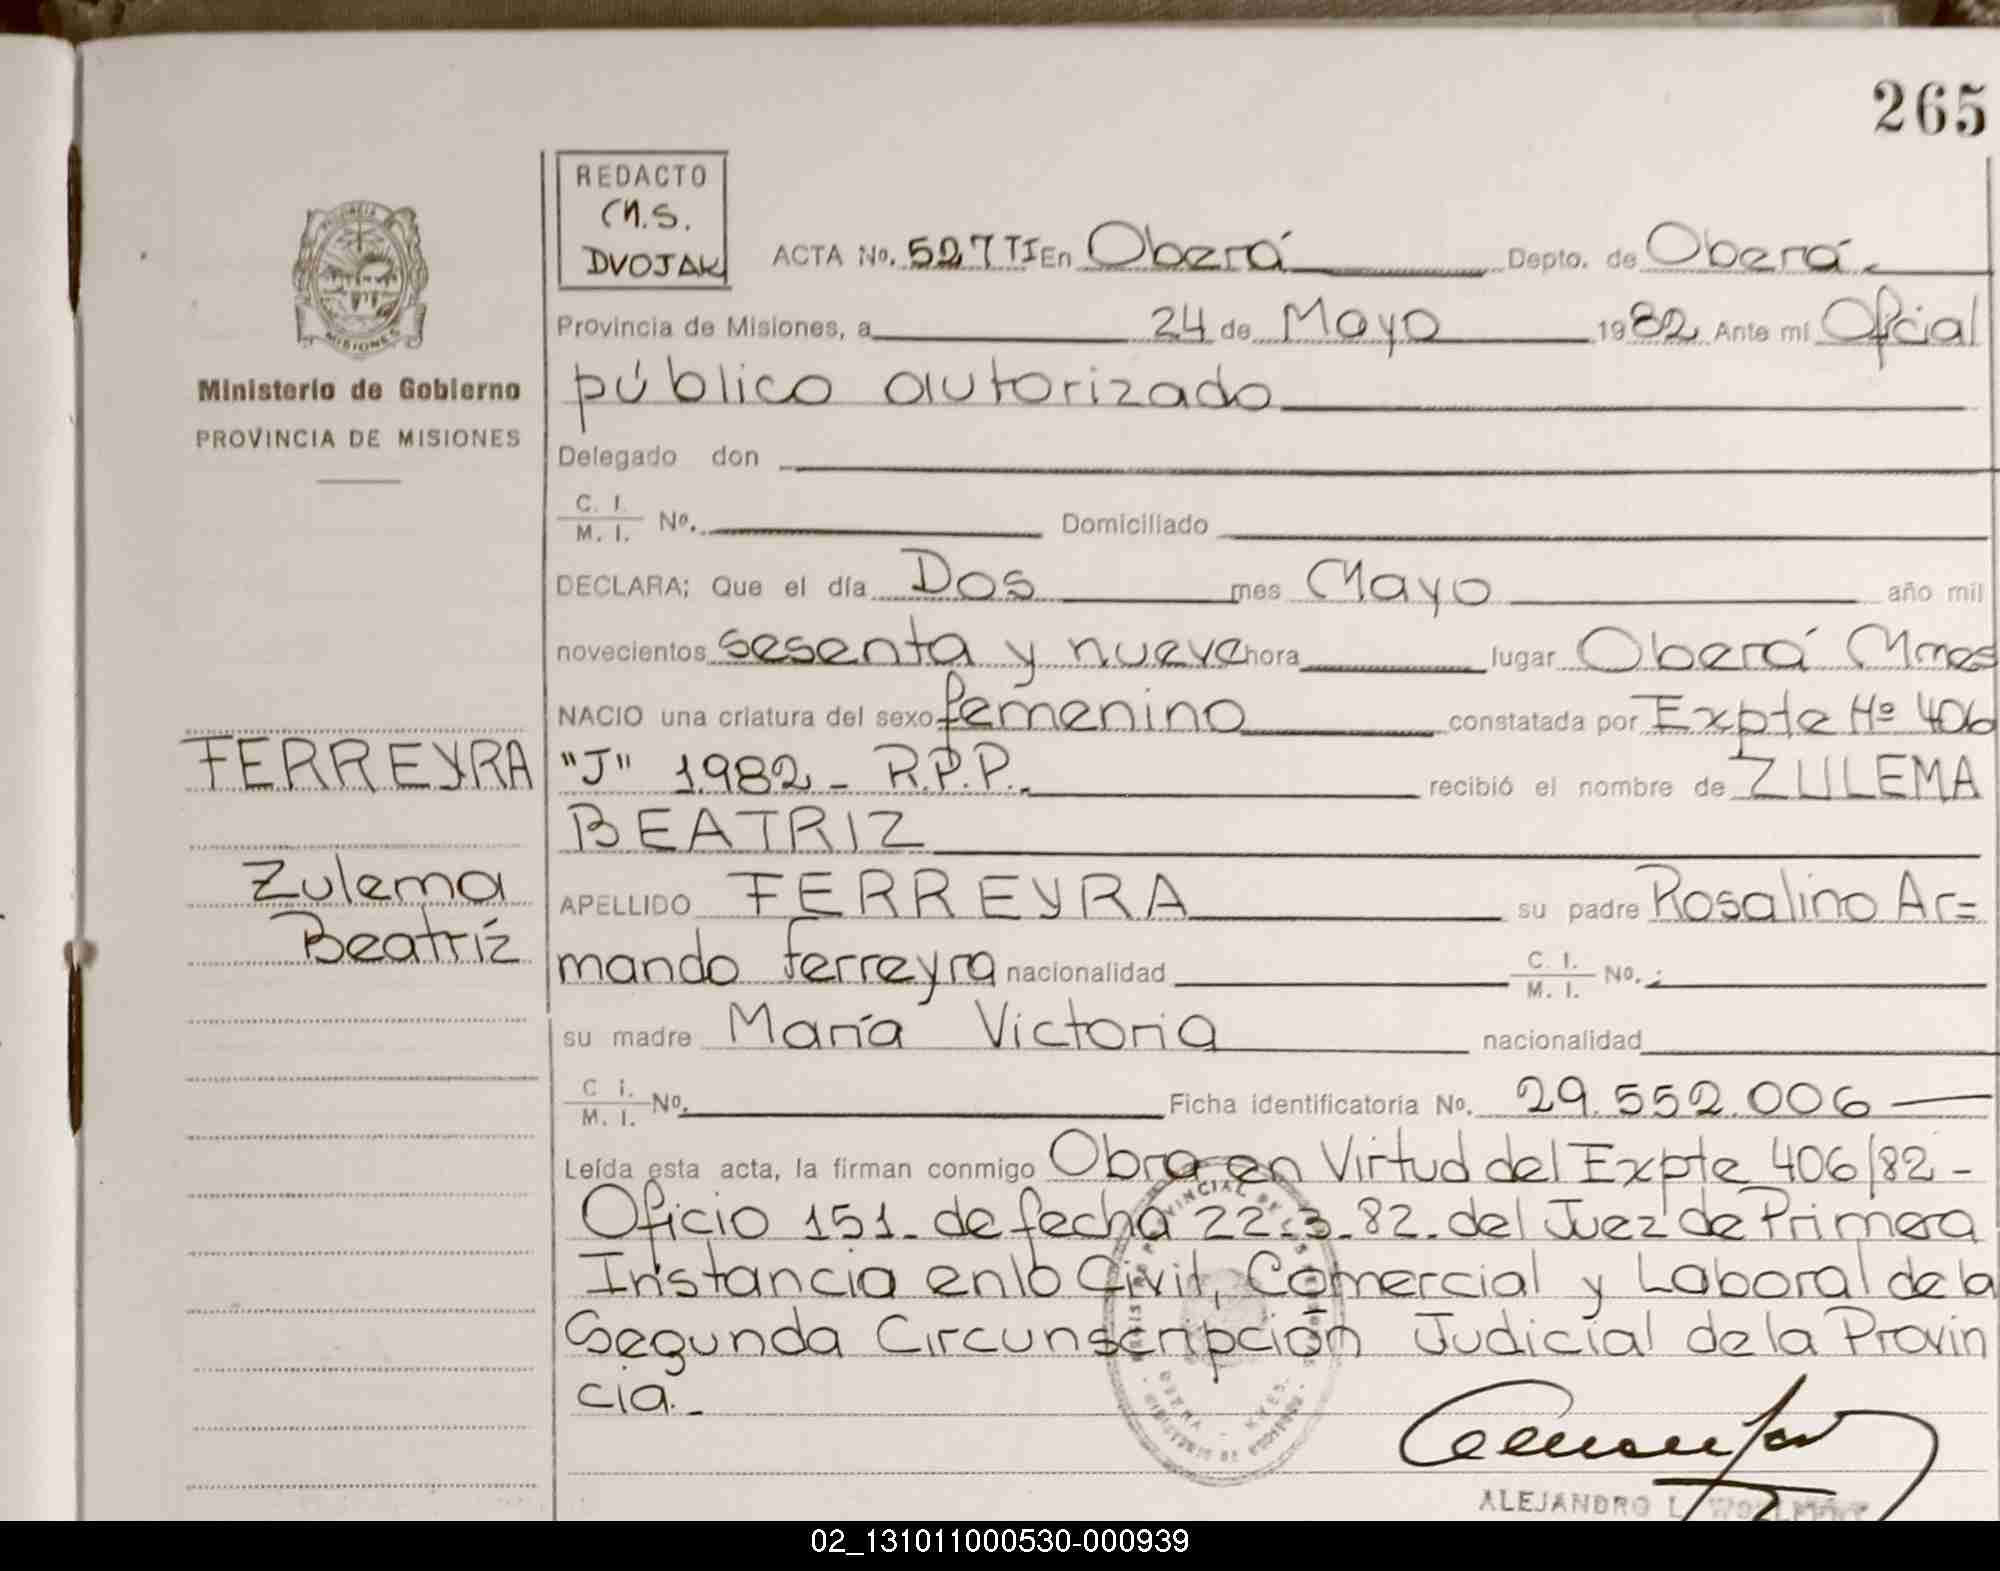 265
REDACTO
M.S.
DVOJAK
ACTA No. 527 TI En Oberá Depto. de Oberá
Provincia de Misiones, a 24 de Mayo 1982 Ante mí Oficial
público autorizado
Delegado don
C. I.
M. I. No. Domiciliado
DECLARA; Que el día Dos mes Mayo año mil
novecientos sesenta y nueve hora lugar Oberá Mnes
NACIO una criatura del sexo femenino constatada por Expte Nº 406
"J" 1982 - R.P.P. recibió el nombre de ZULEMA
BEATRIZ
APELLIDO FERREYRA su padre Rosalino Ar=
mando ferreyra nacionalidad C. I. M. I. No.
su madre María Victoria nacionalidad
C. I.
M. I. No. Ficha identificatoria No. 29.552.006
Leída esta acta, la firman conmigo Obra en Virtud del Expte 406/82 -
Oficio 151. de fecha 22.3.82. del Juez de Primera
Instancia en lo Civil, Comercial y Laboral de la
Segunda Circunscripción Judicial de la Provin
cia.
ALEJANDRO L.
PROVINCIA
MISIONES
Ministerio de Gobierno
PROVINCIA DE MISIONES
FERREYRA
Zulema
Beatríz
02_131011000530-000939